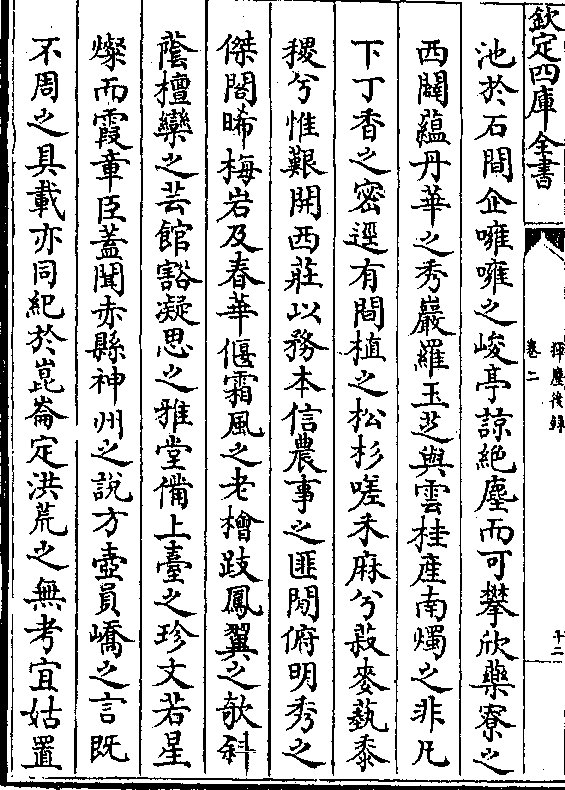 欽定四庫全書
揮麈後錄
卷二
十二
池於石間企噰噰之峻亭諒絶塵而可攀欣藥寮之
西闢蘊丹華之秀巖羅玉芝與雲桂産南燭之非凡
下丁香之密逕有間植之松杉嗟禾麻兮菽麥藝黍
稷兮惟艱開西莊以務本信農事之匪閒俯明秀之
傑閣晞梅岩及春華偃霜風之老檜跂鳳翼之欹斜
蔭檀欒之芸館豁凝思之雅堂備上臺之珍文若星
燦而霞章臣蓋聞赤縣神州之說方壺員嶠之言既
不周之具載亦同紀於崑崙定洪荒之無考宜姑置